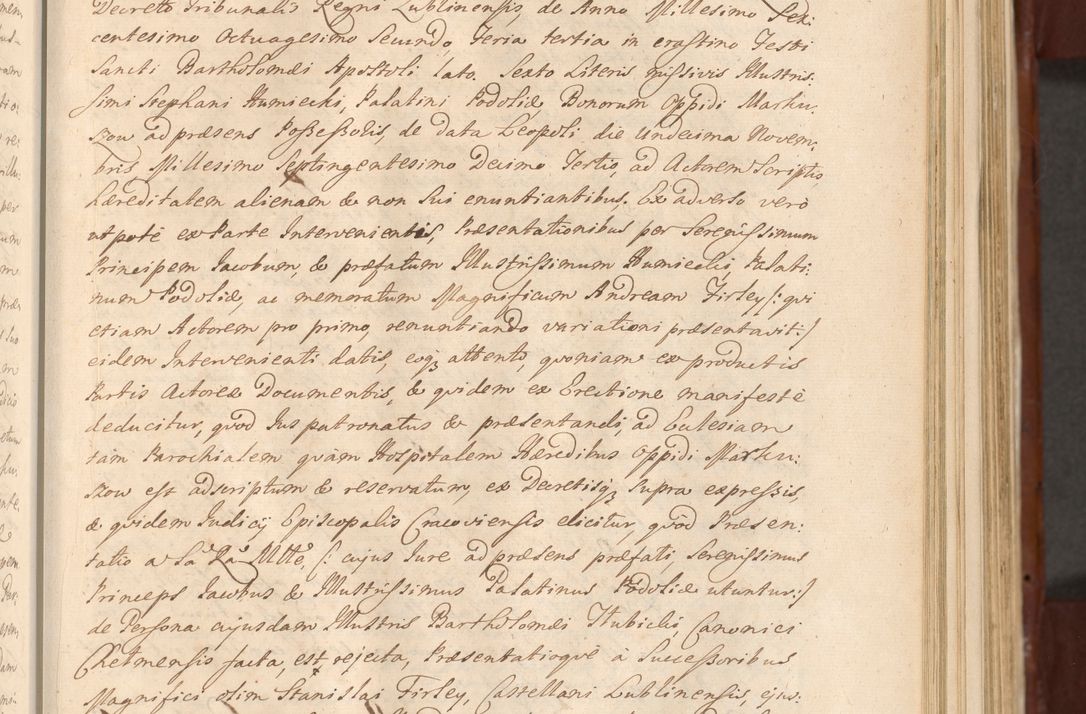 Decreto Tribunalis Regni Lublinensis de Anno Millesimo Sex:
centesimo Octuagesimo Secundo, Feria tertia in crastino Festi
Sancti Bartholomæi Apostoli lato. Sexto Literis missivis Illustris:
simi Stephani Humiecki, Palatini Podoliæ, Bonorum Oppidi Marku:
szow ad præsens Possessoris, de data Leopoli die undecima Novem:
bris Millesimo Septingentesimo Decimo Tertio, ad Actorem Scriptis,
hæreditatem alienam & non sui enuntiantibus. Ex adverso vero
utpote ex Parte Intervenientis, Præsentationibus per Serenissimum
Principem Jacobum, & præfatum Illustrissimum Humiecki, Palati:
num Podoliæ, ac memoratum Magnificum Andream Firley /: qui
etiam Actorem pro primo, renuntiando variationi præsentavit :/
eidem Intervenienti datis, eoq3 attento, quoniam ex productis
Partis Actoreæ Documentis, & quidem ex Erectione manifestè
deducitur, quod Jus patronatus & præsentandi, ad Ecclesiam
tam Parochialem quam Hospitalem Hæredibus Oppidi Marku:
szow est adscriptum & reservatum, ex Decretisq3 supra expressis,
& quidem Judicij Episcopalis Cracoviensis elicitur, quod Præsen:
tatio a Sa Ra Mtte, /: cujus Jure ad præsens præfati Serenissimus
Princeps Jacobus & Illustrissimus Palatinus Podoliæ utuntur :/
de Persona cujusdam Illustris Bartholomæi Hubicki, Canonici
Chelmensis facta, est rejecta, Præsentatioque à Successoribus
Magnifici olim Stanislai Firley, Castellani Lublinensis, ejus: